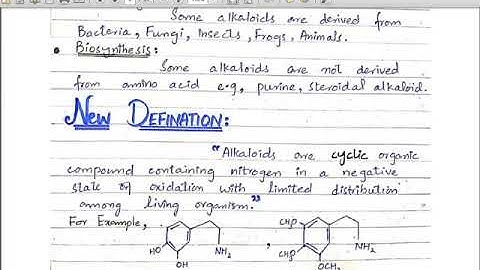 Some alkaloids are derived from
Bacteria, Fungi, Insects, Frogs, Animals.
Biosynthesis:
Some alkaloids are not derived
from amino acid e.g, purine, steroidal alkaloid.
NEW DEFINATION:
"Alkaloids are cyclic organic
compound containing nitrogen in a negative
state of oxidation with limited distribution
among living organism."
For Example,
HO
OH
NH2
,
CH3O
CH3O
OCH3
NH2